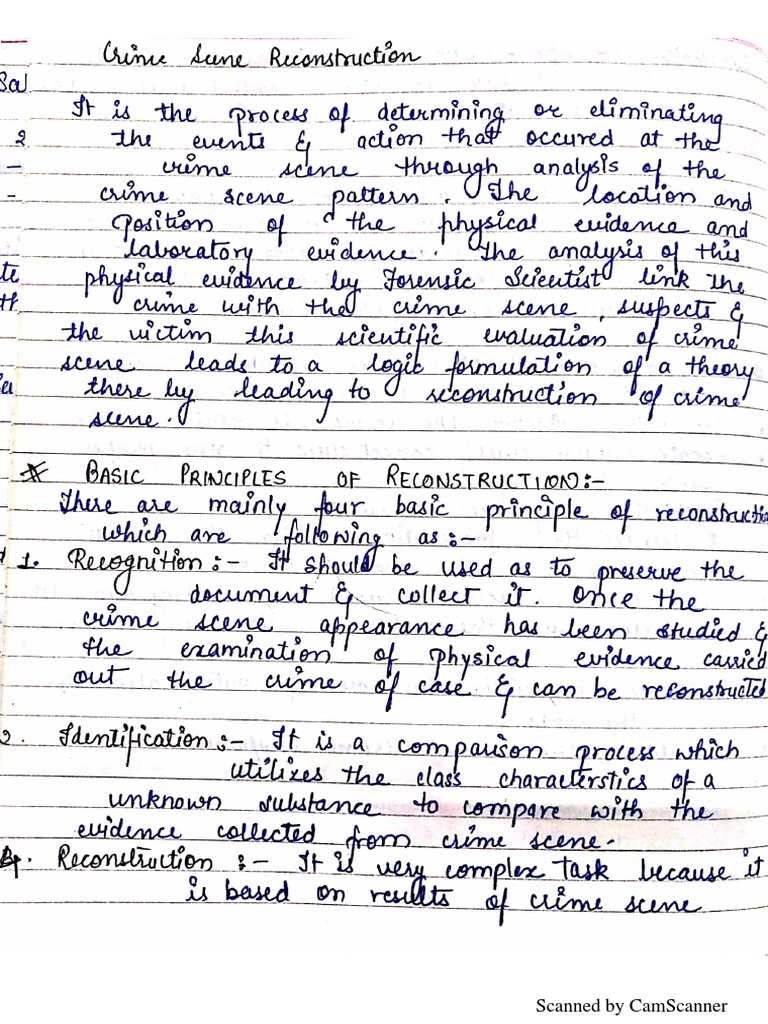 Crime Scene Reconstruction
It is the process of determining or eliminating
the events & action that occured at the
crime scene through analysis of the
crime scene pattern. The location and
position of the physical evidence and
laboratory evidence. The analysis of this
physical evidence by Forensic Scientist link the
crime with the crime scene, suspects &
the victim this scientific evaluation of crime
scene leads to a logic formulation of a theory
there by leading to reconstruction of crime
scene.
* BASIC PRINCIPLES OF RECONSTRUCTION:-
There are mainly four basic principle of reconstructio
which are following as:-
1. Recognition:- It should be used as to preserve the
document & collect it. Once the
crime scene appearance has been studied &
the examination of physical evidence carried
out the crime of case & can be reconstructed
2. Identification:- It is a comparison process which
utilizes the class characterstics of a
unknown substance to compare with the
evidence collected from crime scene.
Reconstruction :- It is very complex task because it
is based on results of crime scene
Scanned by CamScanner